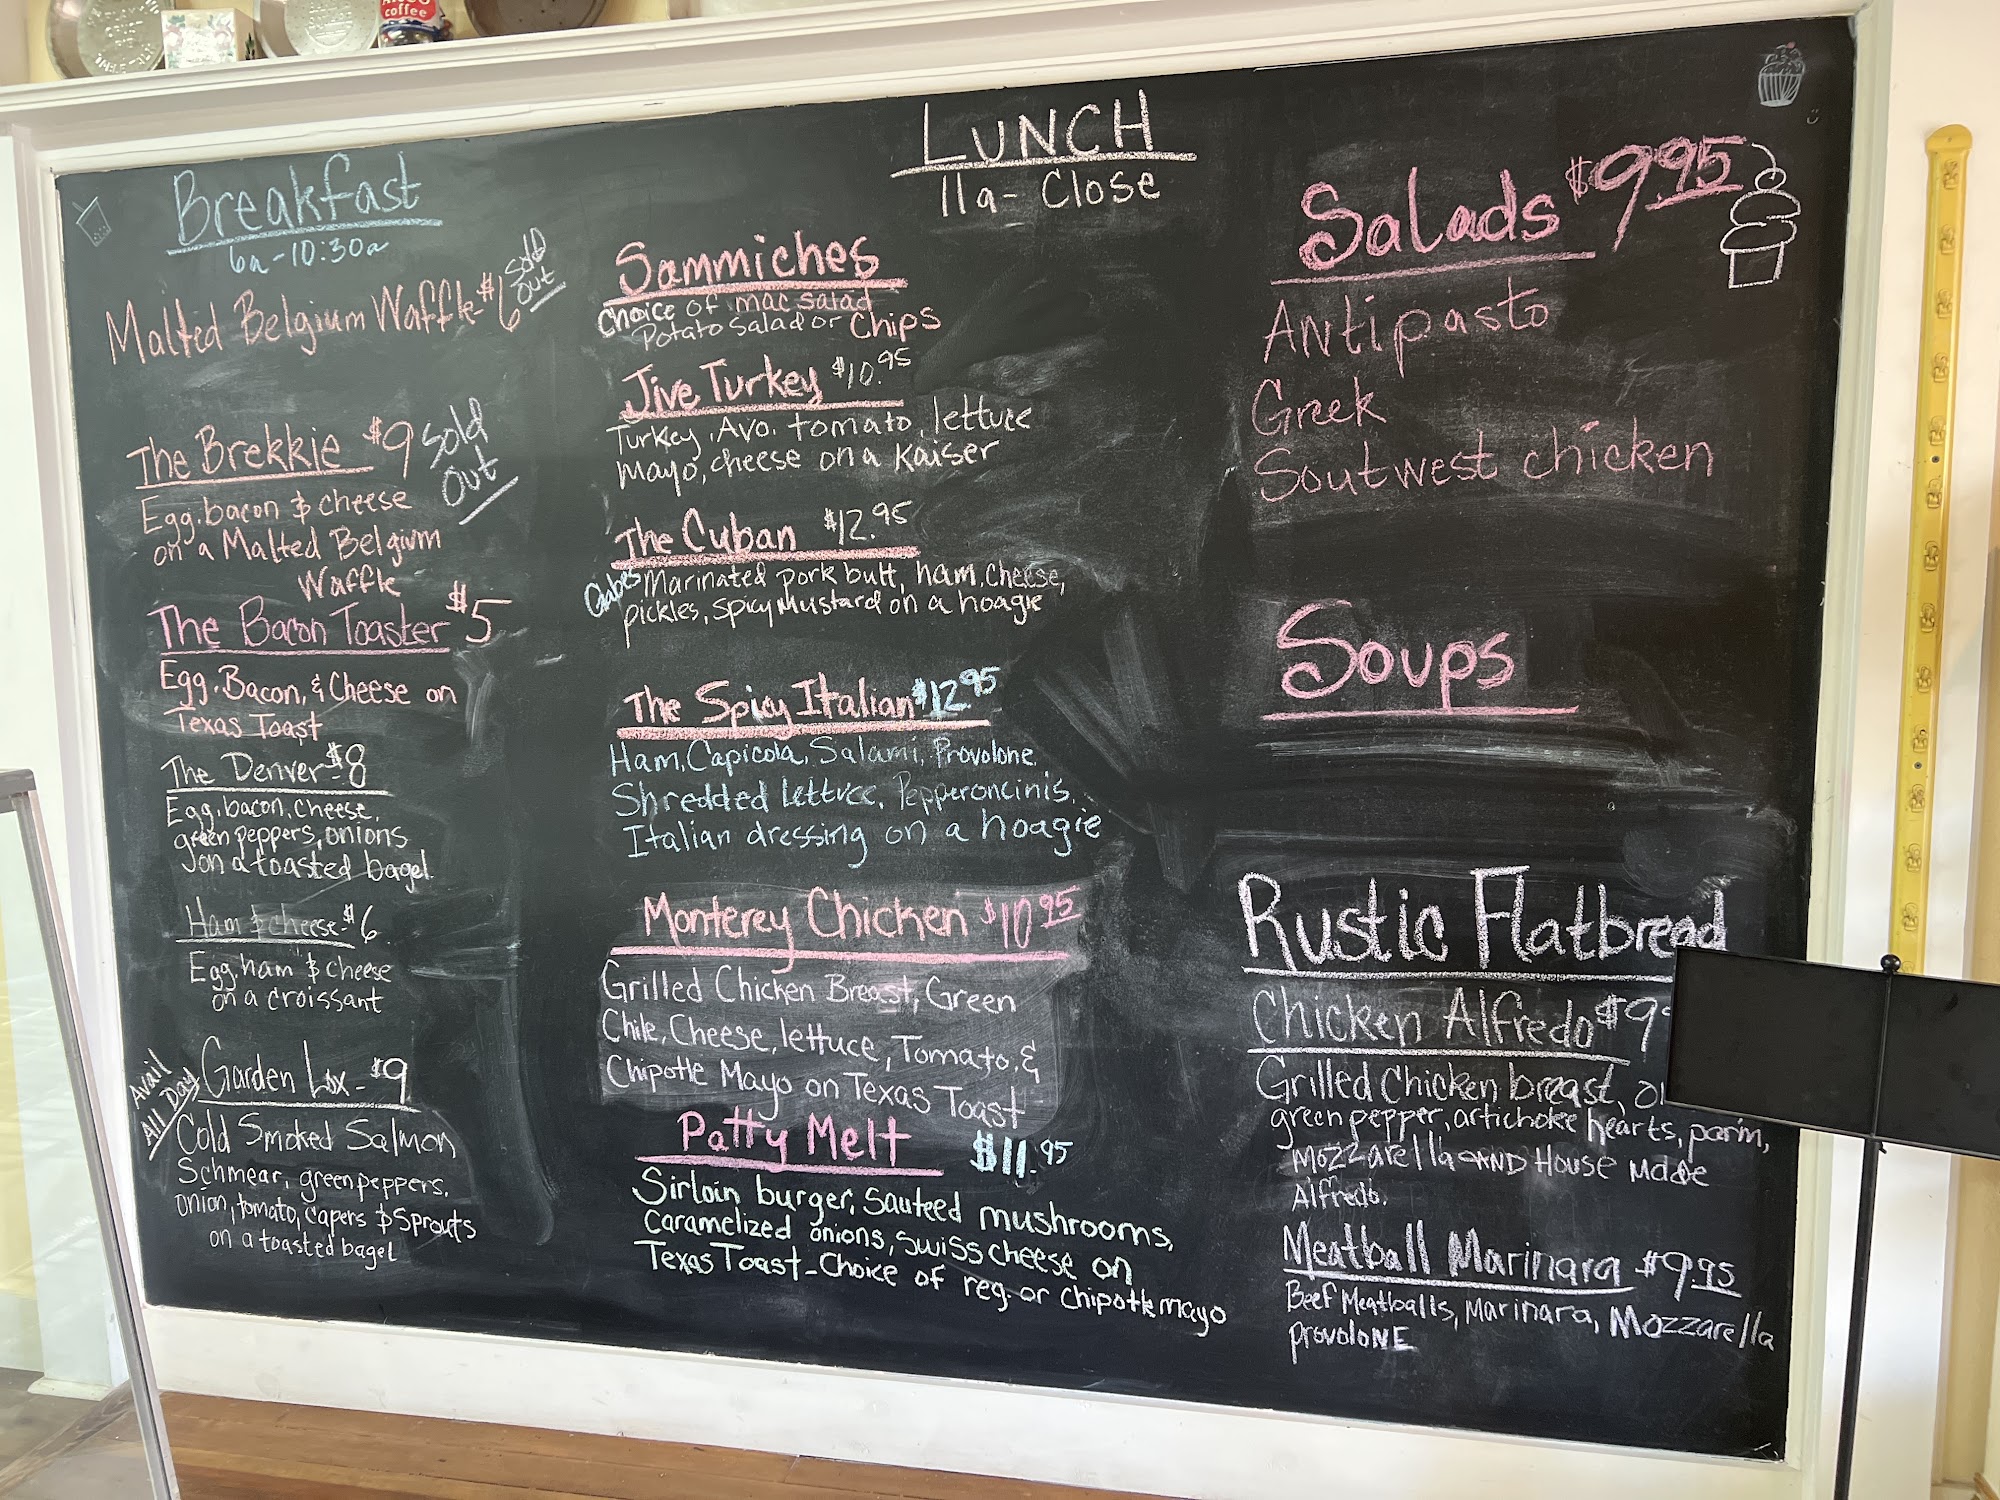 coffee
Breakfast
6a-10:30a
Malted Belgium Waffle-$6 Sold
Out
The Brekkie $9 Sold
Out
Egg, bacon & cheese
on a Malted Belgium
Waffle
The Bacon Toaster $5
Egg, Bacon, & Cheese on
Texas Toast
The Denver-$8
Egg, bacon, cheese,
green peppers, onions
on a toasted bagel.
Ham & cheese-$6
Egg, ham & cheese
on a croissant
Avail
All Day
Garden Lox-$9
Cold Smoked Salmon
Schmear, green peppers,
onion, tomato, capers & Sprouts
on a toasted bagel
LUNCH
11a-Close
Sammiches
Choice of mac salad
Potato salad or Chips
Jive Turkey $10.95
Turkey, Avo, tomato, lettuce
Mayo, cheese on a Kaiser
The Cuban $12.95
Gabes Marinated pork butt, ham, cheese,
pickles, spicy mustard on a hoagie
The Spicy Italian $12.95
Ham, Capicola, Salami, Provolone
Shredded lettuce, Pepperoncinis,
Italian dressing on a hoagie
Monterey Chicken $10.95
Grilled Chicken Breast, Green
Chile, Cheese, lettuce, Tomato, &
Chipotle Mayo on Texas Toast
Patty Melt $11.95
Sirloin burger, Sauteed mushrooms,
Caramelized onions, swiss cheese on
Texas Toast-Choice of reg. or chipotle mayo
Salads $9.95
Antipasto
Greek
Soutwest chicken
Soups
Rustic Flatbread
Chicken Alfredo $9
Grilled Chicken breast,
green pepper, artichoke hearts, parm,
Mozzarella AND House Made
Alfredo.
Meatball Marinara $9.95
Beef Meatballs, Marinara, Mozzarella
Provolone